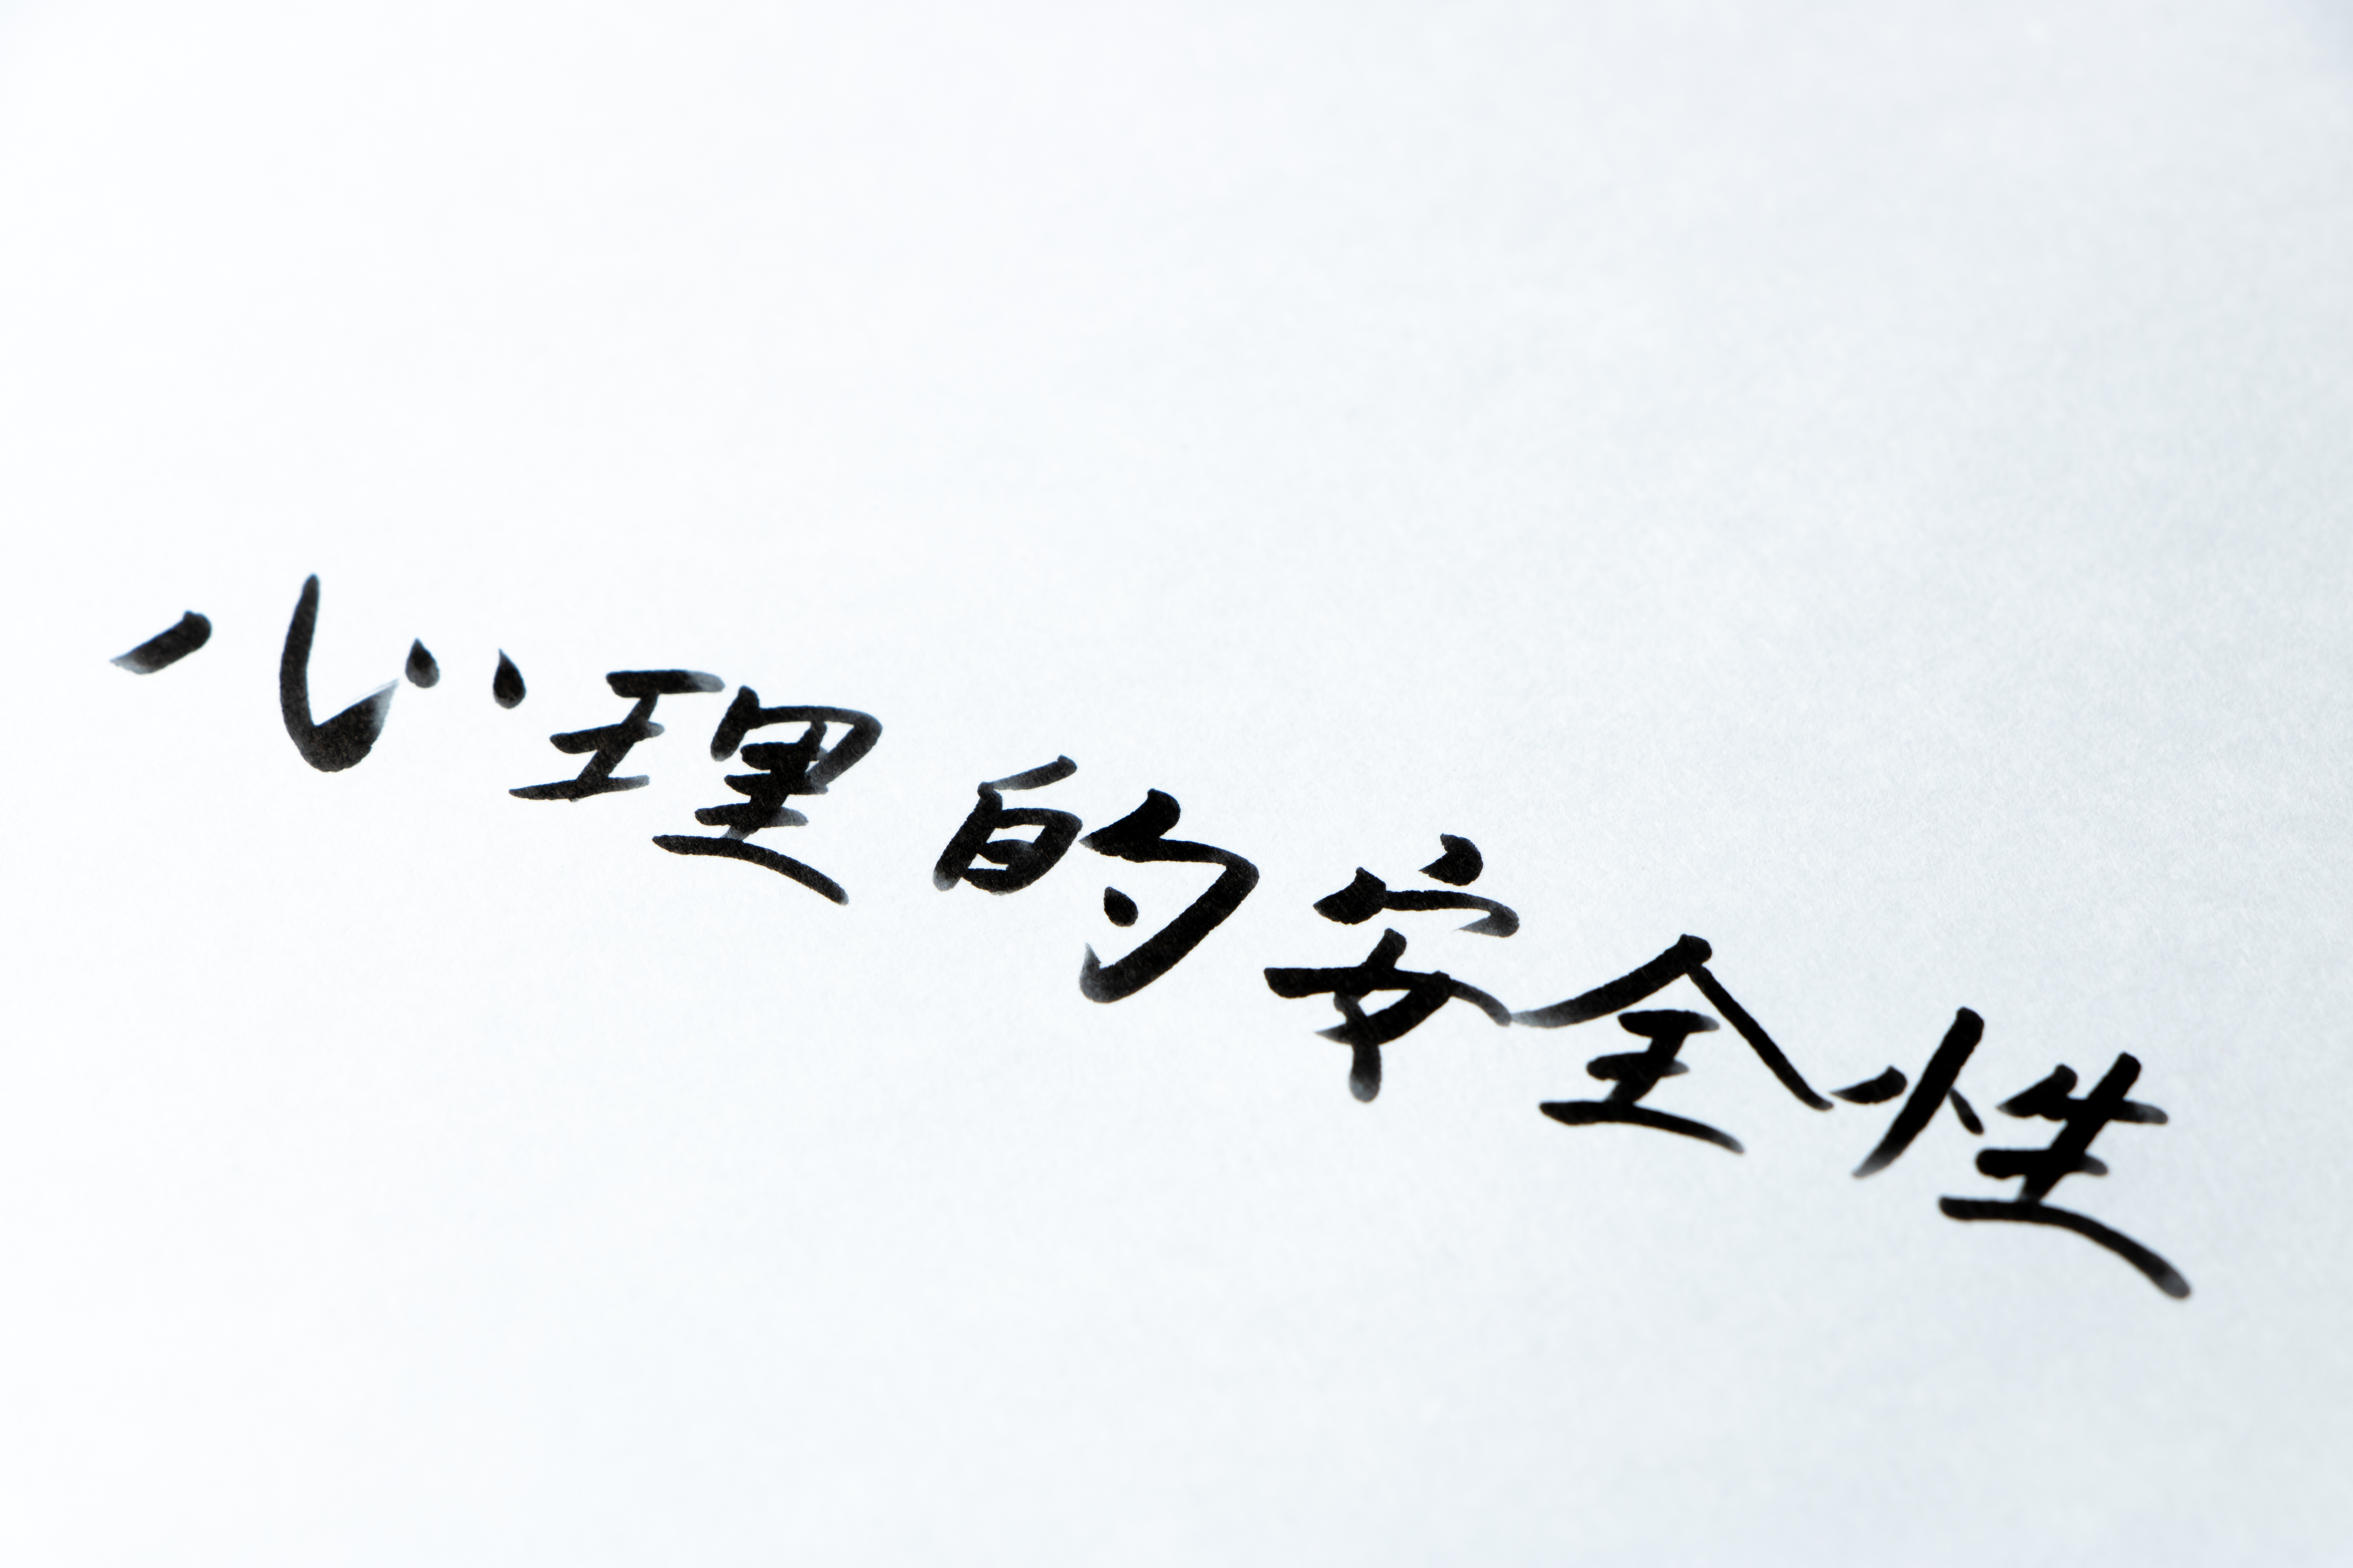 心理的安全性